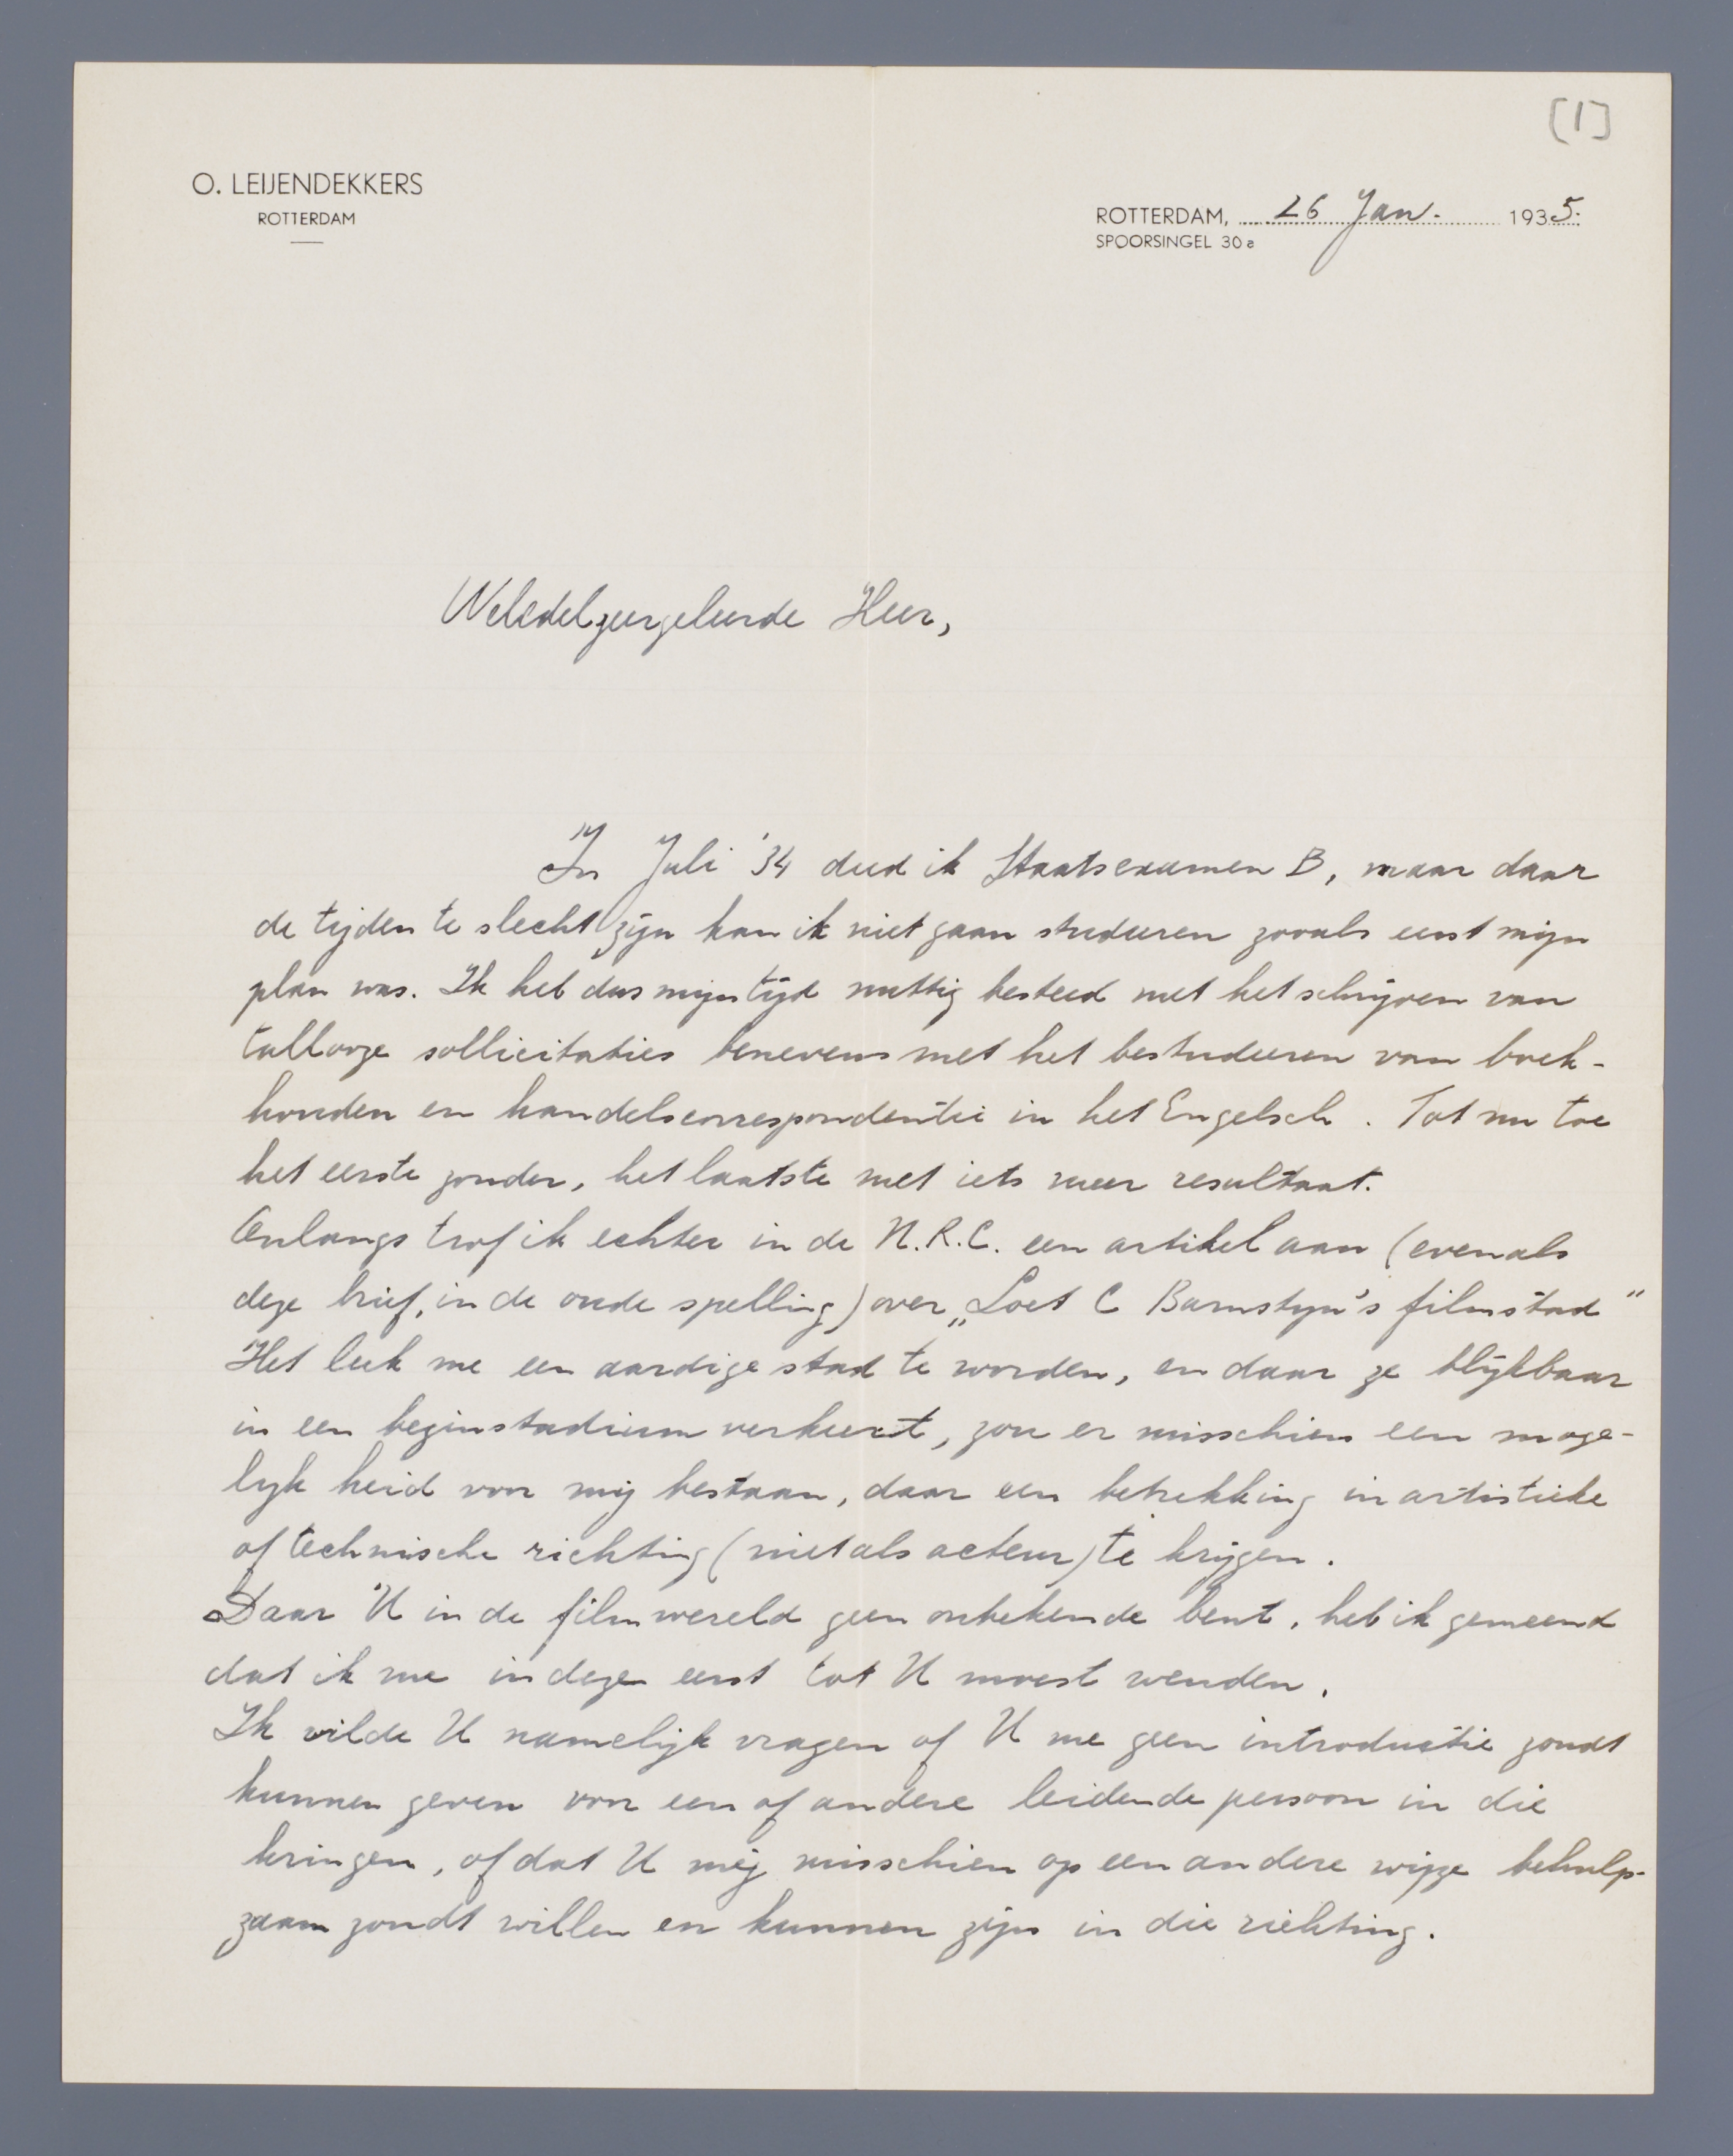 [1]
O. LEIJENDEKKERS
ROTTERDAM
ROTTERDAM, 26 Jan. 1935.
SPOORSINGEL 30a
WelEdelzeergeleerde Heer,
In Juli '34 deed ik Staatsexamen B, maar daar
de tijden te slecht zijn kan ik niet gaan studeeren zooals eerst mijn
plan was. Ik heb dus mijn tijd nuttig besteed met het schrijven van
tallooze sollicitaties benevens met het bestudeeren van boek-
houden en handelscorrespondentie in het Engelsch. Tot nu toe
het eerste zonder, het laatste met iets meer resultaat.
Onlangs trof ik echter in de N.R.C. een artikel aan (evenals
deze brief, in de oude spelling) over „Loet C Barnstyn's filmstad"
Het leek me een aardige stad te worden, en daar ze blijkbaar
in een beginstadium verkeert, zou er misschien een moge-
lijkheid voor mij bestaan, daar een betrekking in artistieke
of technische richting (niet als acteur) te krijgen.
Daar U in de filmwereld geen onbekende bent, heb ik gemeend
dat ik me in deze eerst tot U moest wenden.
Ik wilde U namelijk vragen of U me geen introductie zoudt
kunnen geven voor een of andere leidende persoon in die
kringen, of dat U mij misschien op een andere wijze behulp-
zaam zoudt willen en kunnen zijn in die richting.